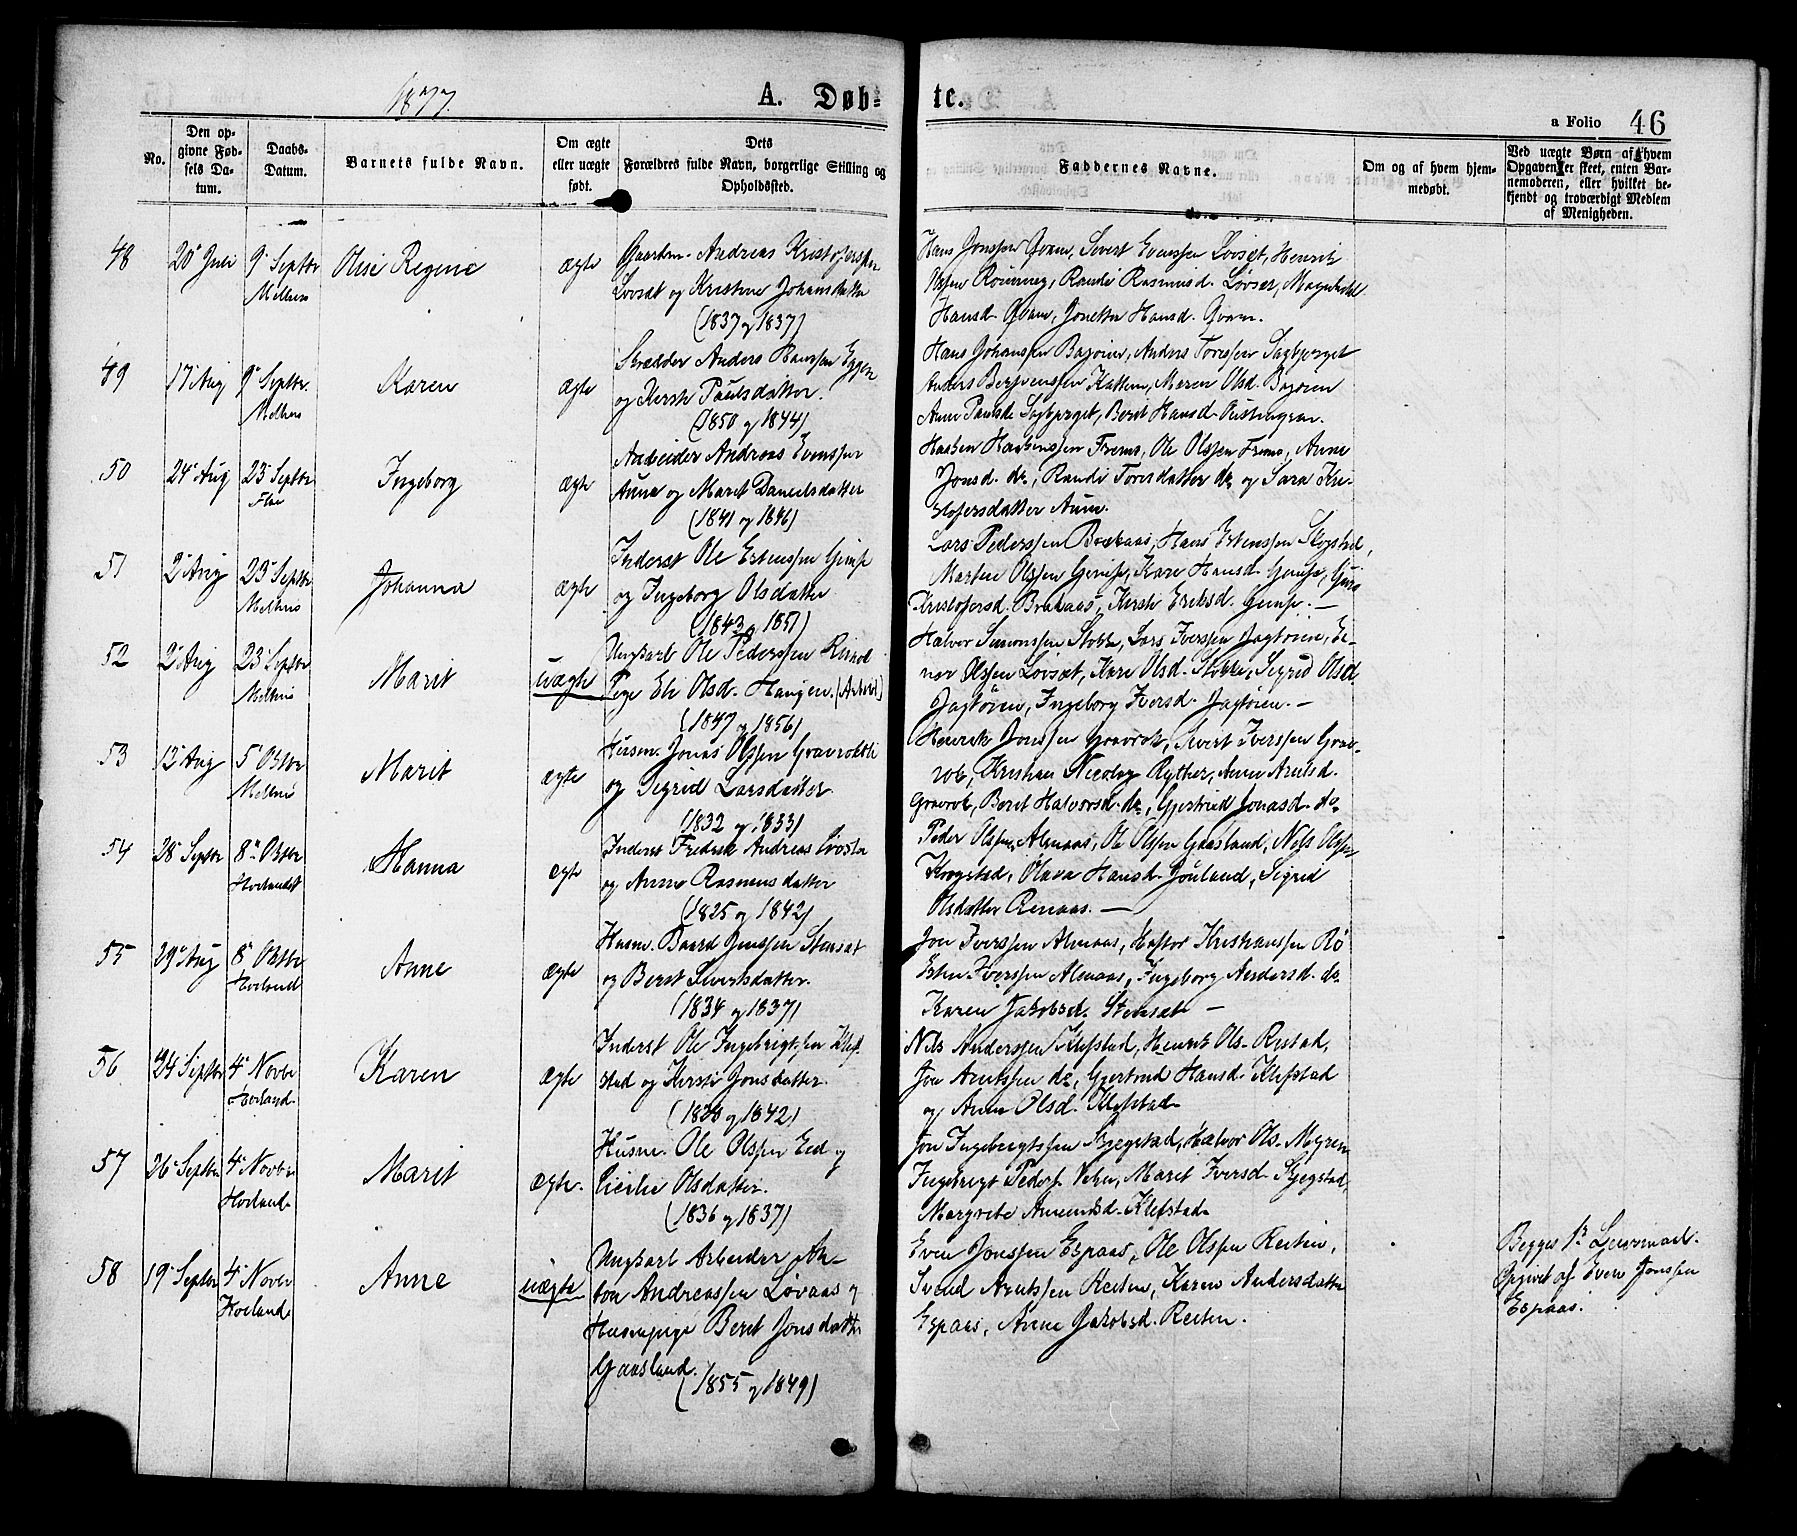 1877.
A. Døb-
te.
a Folio 46
No.
Den op-
givne Fød-
sels Da-
tum.
Daabs-
Datum.
Barnets fulde Navn.
Om ægte
eller uægte
født.
Dets
Forældres fulde Navn, borgerlige Stilling og
Opholdssted.
Faddernes Navne.
Om og af hvem hjem-
medøbt.
Ved uægte Børn af hvem
Opgaven er skeet, enten Bar-
nemoderen, eller hvilket be-
kjendt og troværdigt Medlem
af Menigheden.
48
20 Juli
9 Septbr
Melhus
Olise Regine
ægte
Gaardm. Andreas Kristofersen
Lovset og Kristine Johansdatter
(1837 og 1837)
Hans Jonssen Qvam, Sivert Evenssen Lovset, Henrik
Olssen Rönning, Randi Rasmusd. Lovset, Magnhild
Hansd. Qvam, Jonetta Hansd. Qvam.
49
17 Aug
9 Septbr.
Melhus
Karen
ægte
Skrædder Anders Hanssen Eggen
og Kersti Paulsdatter.
(1850 og 1844)
Hans Johanssen Bagöien, Anders Toressen Sagbjerget
Anders Kattem, Meren Olsd. Bagöien
Anne Paulsd. Sagbjerget, Berit Hansd.
50
24 Aug
23 Septbr
Flaa
Ingeborg
ægte
Arbeider Andreas Evenssen
Aune og Marit Danielsdatter
(1841 og 1846)
Haaken Haakenssen Fremo, Ole Olssen Fremo, Anne
Jonsd. do, Randi Toresdatter do og Sara Kri-
stofersdatter Aune.
51
2 Aug
23 Septbr
Melhus
Johanna
ægte
Inderst Ole Estenssen Gimse
og Ingeborg Olsdatter
(1843 og 1851)
Lars Pederssen Brekaas, Hans Estenssen Skogstad,
Marten Olssen Gimse, Kari Hansd. Gimse, Guro
Kristofersd. Brekaas, Kersti Eriksd. Gimse. —
52
2 Aug
23 Septbr
Melhus
Marit
uægte
Ungkarl Ole Pederssen
Pige Eli Olsd. Haugen.
(1847 og 1856)
Halvor Simonssen Stokke, Lars Iverssen Jagtöien, Ei-
nar Olssen Lovset, Kari Olsd. Stokke, Sigrid Olsd.
Jagtöien, Ingeborg Iversd. Jagtöien. —
53
12 Aug
5 Oktbr
Melhus
Marit
ægte
Husm. Jonas Olssen
og Sigrid Larsdatter.
(1832 og 1833)
Henrik Jonssen Gravrok, Sivert Iverssen Grav-
rok, Kristian Nicolay Rytter, Anne Arntsd.
Gravrok, Berit Halvorsd. do, Gjertrud Jonasd. do
54
28 Septbr
8 Oktbr
Horlandet
Hanna
ægte
Inderst Fredrik Andreas
og Anne Rasmusdatter
(1825 og 1842)
Peder Olssen Almaas, Ole Olssen Gaasland, Nils Olssen
Krogstad, Olava Hansd. Sigrid
Olsdatter —
55
29 Aug
8 Oktbr
Horland
Anne
ægte
Husm. Baard Jenssen Stensæt
og Berit Sivertsdatter.
(1834 og 1837)
Jon Iverssen Almaas, Kristianssen Rö
Esten Iverssen Almaas, Ingeborg Andersd. do
Karen Jakobsd. Stensæt —
56
24 Septbr
4 Novbr
Horland.
Karen
ægte
Inderst Ole Ingebrigtssen Klef-
stad og Kersti Jonsdatter.
Nils Anderssen Klefstad, Henrik Ols. Ristad,
Jon Arntssen do, Gjertrud Hansd. Klefstad
og Anne Olsd. Klefstad
57
26 Septbr
4 Novbr
Horland
Marit
ægte.
Husm. Ole Olssen Eid og
Cicilie Olsdatter.
(1836 og 1837)
Jon Ingebrigtssen Skjegstad, Halvor Ols. Myren
Ingebrigt Peders. Marit Iversd. Skjegstad,
Margrete Amundsd. Klefstad
58
19 Septbr
4 Novbr
Horland
Anne
uægte
Ungkarl Arbeider An-
ton Andreassen Lövaas og
Huuspige Berit Jonsdatter
Gaasland.
(1855 og 1849)
Even Jonssen Espaas, Ole Olssen Reiten,
Svend Arntssen Reiten, Karen Andersdatter
Espaas, Anne Jakobsd. Reiten.
Begges 1ste Leiermaal.
Opgivet af Even Jonssen
Espaas.